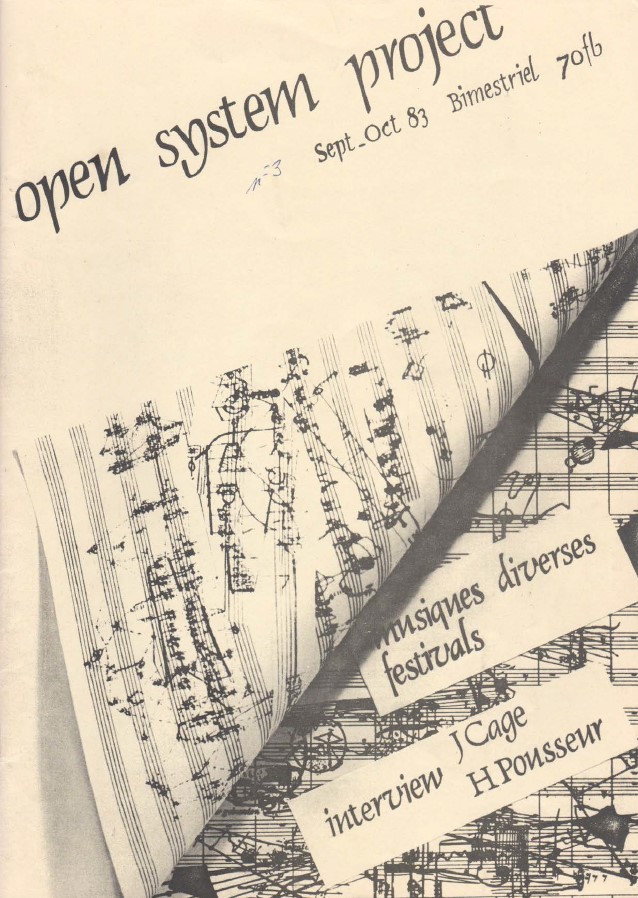 open system project
n°3
Sept_Oct 83 Bimestriel 70fb
musiques diverses
festivals
interview J Cage
H Pousseur
1977